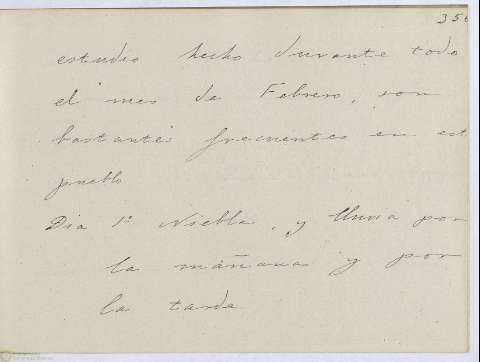 estudio hecho durante todo
el mes de Febrero, son
bastantes frecuentes en est
pueblo
Dia 1º Niebla, y lluvia por
la mañana y por
la tarde